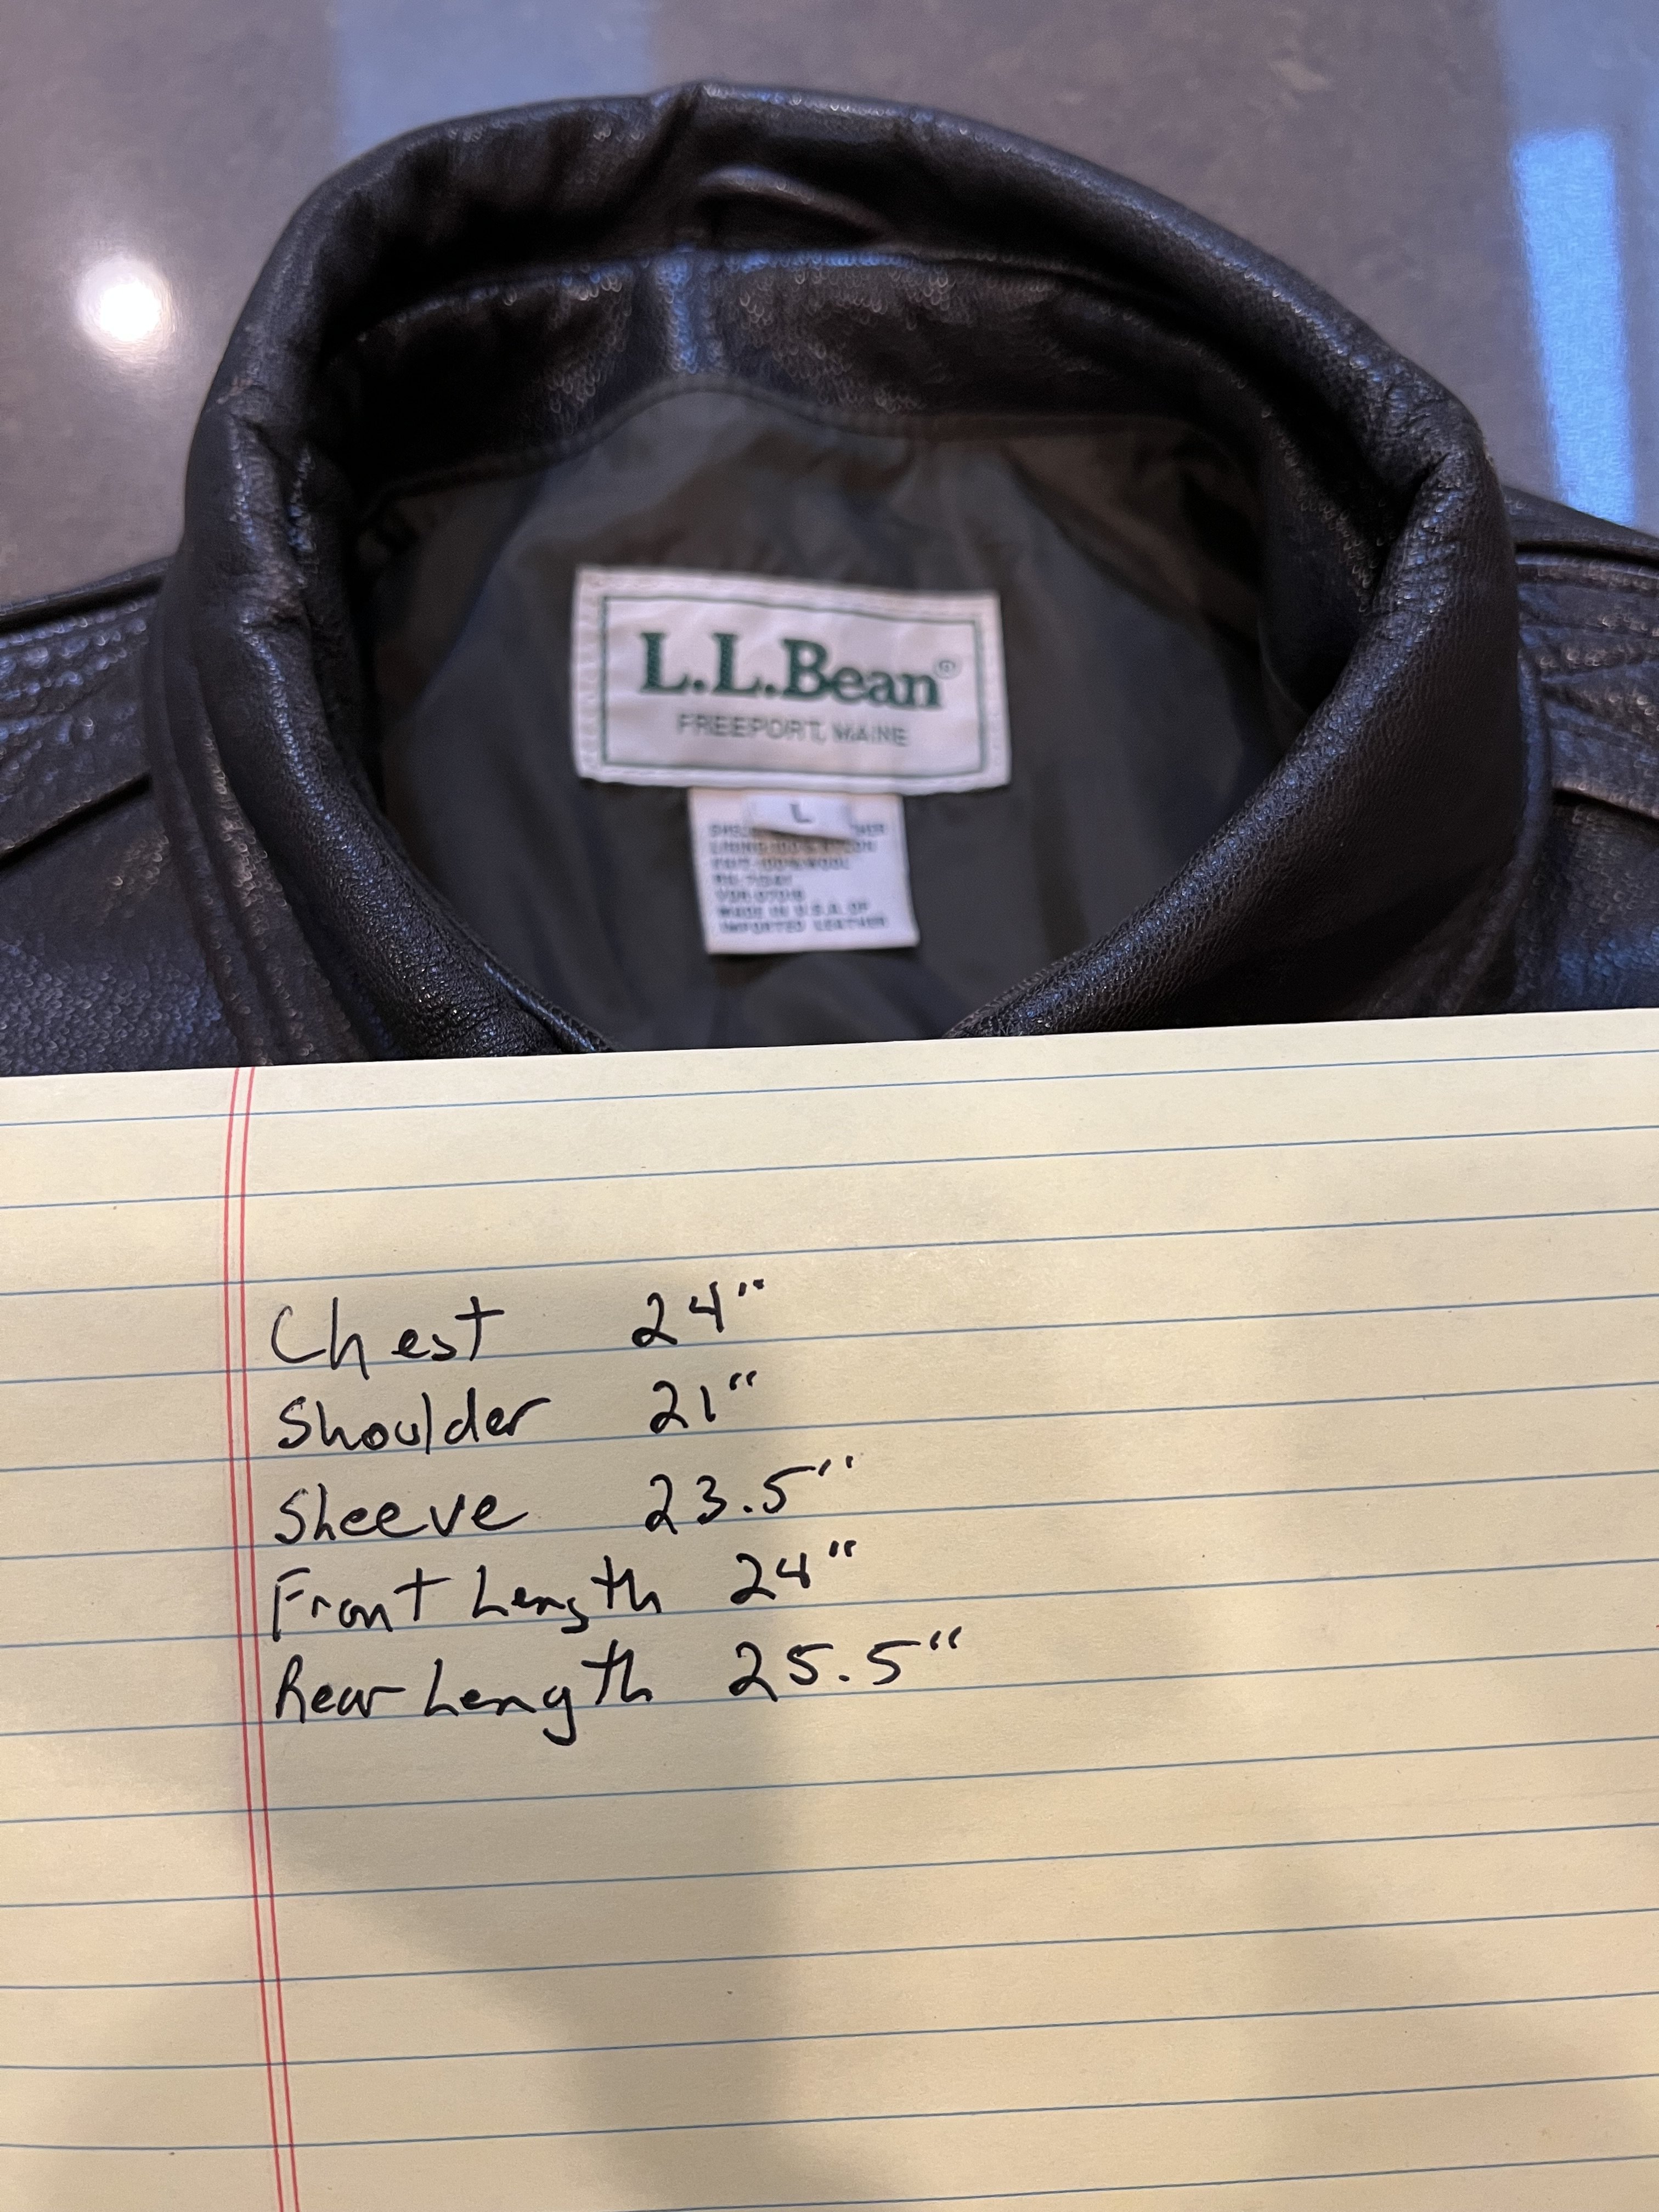 L.L.Bean®
FREEPORT, MAINE
L
LINING: 100%
KNIT: 100% WOOL
MADE IN U.S.A. OF
IMPORTED LEATHER
Chest 24"
Shoulder 21"
Sleeve 23.5"
Front Length 24"
Rear Length 25.5"